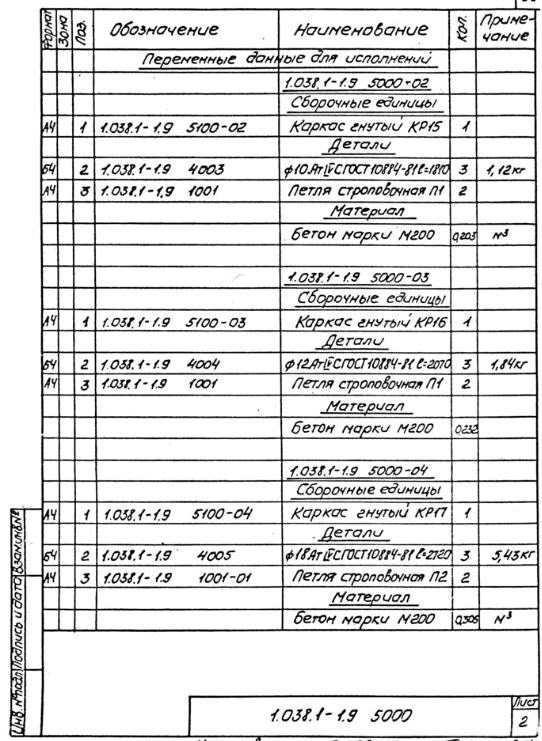 Формат Зона Поз. Обозначение Наименование Кол. Приме-
чание
Переменные данные для исполнений
1.038.1-1.9 5000-02
Сборочные единицы
А4 1 1.038.1-1.9 5100-02 Каркас гнутый КР15 1
Детали
Б4 2 1.038.1-1.9 4003 ф10АтⅣС ГОСТ 10884-81 ℓ=1810 3 1,12кг
А4 3 1.038.1-1.9 1001 Петля строповочная П1 2
Материал
Бетон марки М200 0,203 м³
1.038.1-1.9 5000-03
Сборочные единицы
А4 1 1.038.1-1.9 5100-03 Каркас гнутый КР16 1
Детали
Б4 2 1.038.1-1.9 4004 ф12АтⅣС ГОСТ 10884-81 ℓ=2070 3 1,84кг
А4 3 1.038.1-1.9 1001 Петля строповочная П1 2
Материал
Бетон марки М200 0,232
1.038.1-1.9 5000-04
Сборочные единицы
А4 1 1.038.1-1.9 5100-04 Каркас гнутый КР17 1
Детали
Б4 2 1.038.1-1.9 4005 ф18АтⅣС ГОСТ 10884-81 ℓ=2720 3 5,43кг
А4 3 1.038.1-1.9 1001-01 Петля строповочная П2 2
Материал
Бетон марки М200 0,305 м³
Инв. № подл Подпись и дата Взам.инв.№
1.038.1-1.9 5000
Лист
2